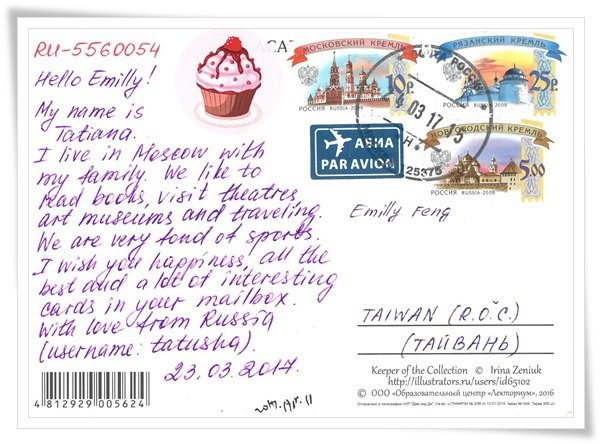 RU-5560054
Hello Emilly!
My name is
Tatiana.
I live in Moscow with
my family. We like to
read books, visit theatres,
art museums and traveling.
We are very fond of sports.
I wish you happiness, all the
best and a lot of interesting
cards in your mailbox.
With love from Russia
(username: tatusha).
23.03.2017.
4 812929 005624
2017.Apr.11
МОСКОВСКИЙ КРЕМЛЬ
10 р.
РОССИЯ RUSSIA·2009
РЯЗАНСКИЙ КРЕМЛЬ
25 р.
РОССИЯ RUSSIA·2009
НОВГОРОДСКИЙ КРЕМЛЬ
5.00
РОССИЯ RUSSIA·2009
03 17
25375
АВИА
PAR AVION
Emilly Feng
TAIWAN (R.O.C.)
(ТАЙВАНЬ)
Keeper of the Collection © Irina Zeniuk
http://illustrators.ru/users/id65102
© ООО «Образовательный центр «Лекториум», 2016